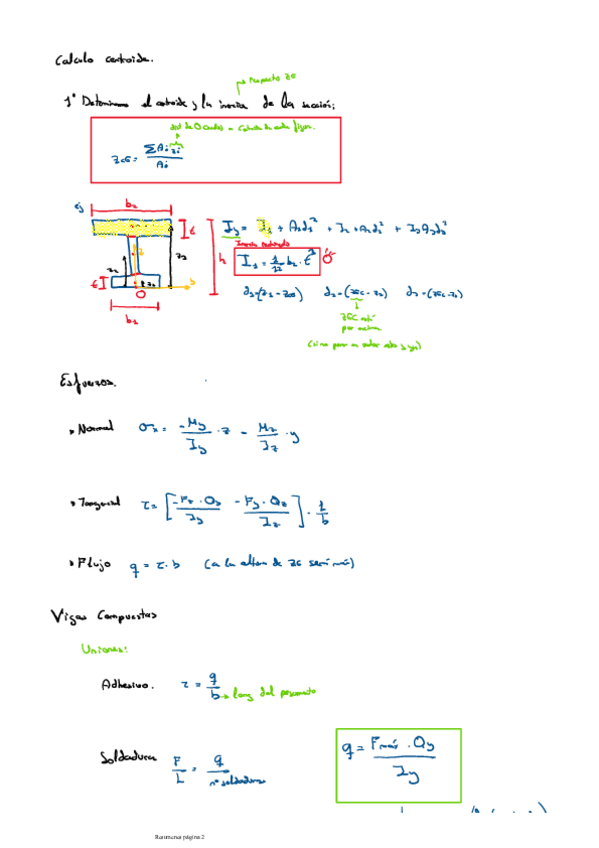 Calculo centroide.
→ Respecto ZG
1º Determinamos el centroide y la inercia de la sección:
dist de O centro a centroide cada figura.
ZCG = ΣAi·zi / Ai
Ej
b2
t
h
z3
z2
z1
t
O
b1
Iy = I1 + A1d1² + I2 + A2d2² + I3 A3d3²
Inercia rectángulo
I1 = 1/12 b2 · t³
d3=(z3-zCG) d2=(zCG-z2) d1=(zCG-z1)
ZCG está
por encima
Esfuerzos.
→ Normal σx = -My/Iy · z - Mz/Iz · y
→ Tangencial τ = [-Fz · Qy/Iy -Fy · Qz/Iz] · 1/b
→ Flujo q = τ · b (a la altura de ZG será máx)
Vigas Compuestas
Uniones:
Adhesivo. τ = q/b → long del pegamento
Soldadura F/L = q/nº soldaduras
q = Fmáx · Qy / Iy
Resumenes página 2